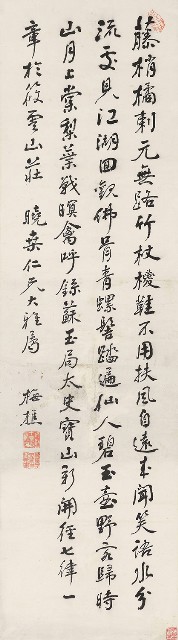 藤梢橘刺元無路竹杖椶鞋不用扶風自遠來聞笑語水分
流處見江湖回觀佛骨青螺髻踏遍仙人碧玉壺野客歸時
山月上棠梨葉戰暝禽呼錄蘇玉局太史寶山新開徑七律一
章於筱雲山莊 曉桑仁兄大雅屬 梅樵